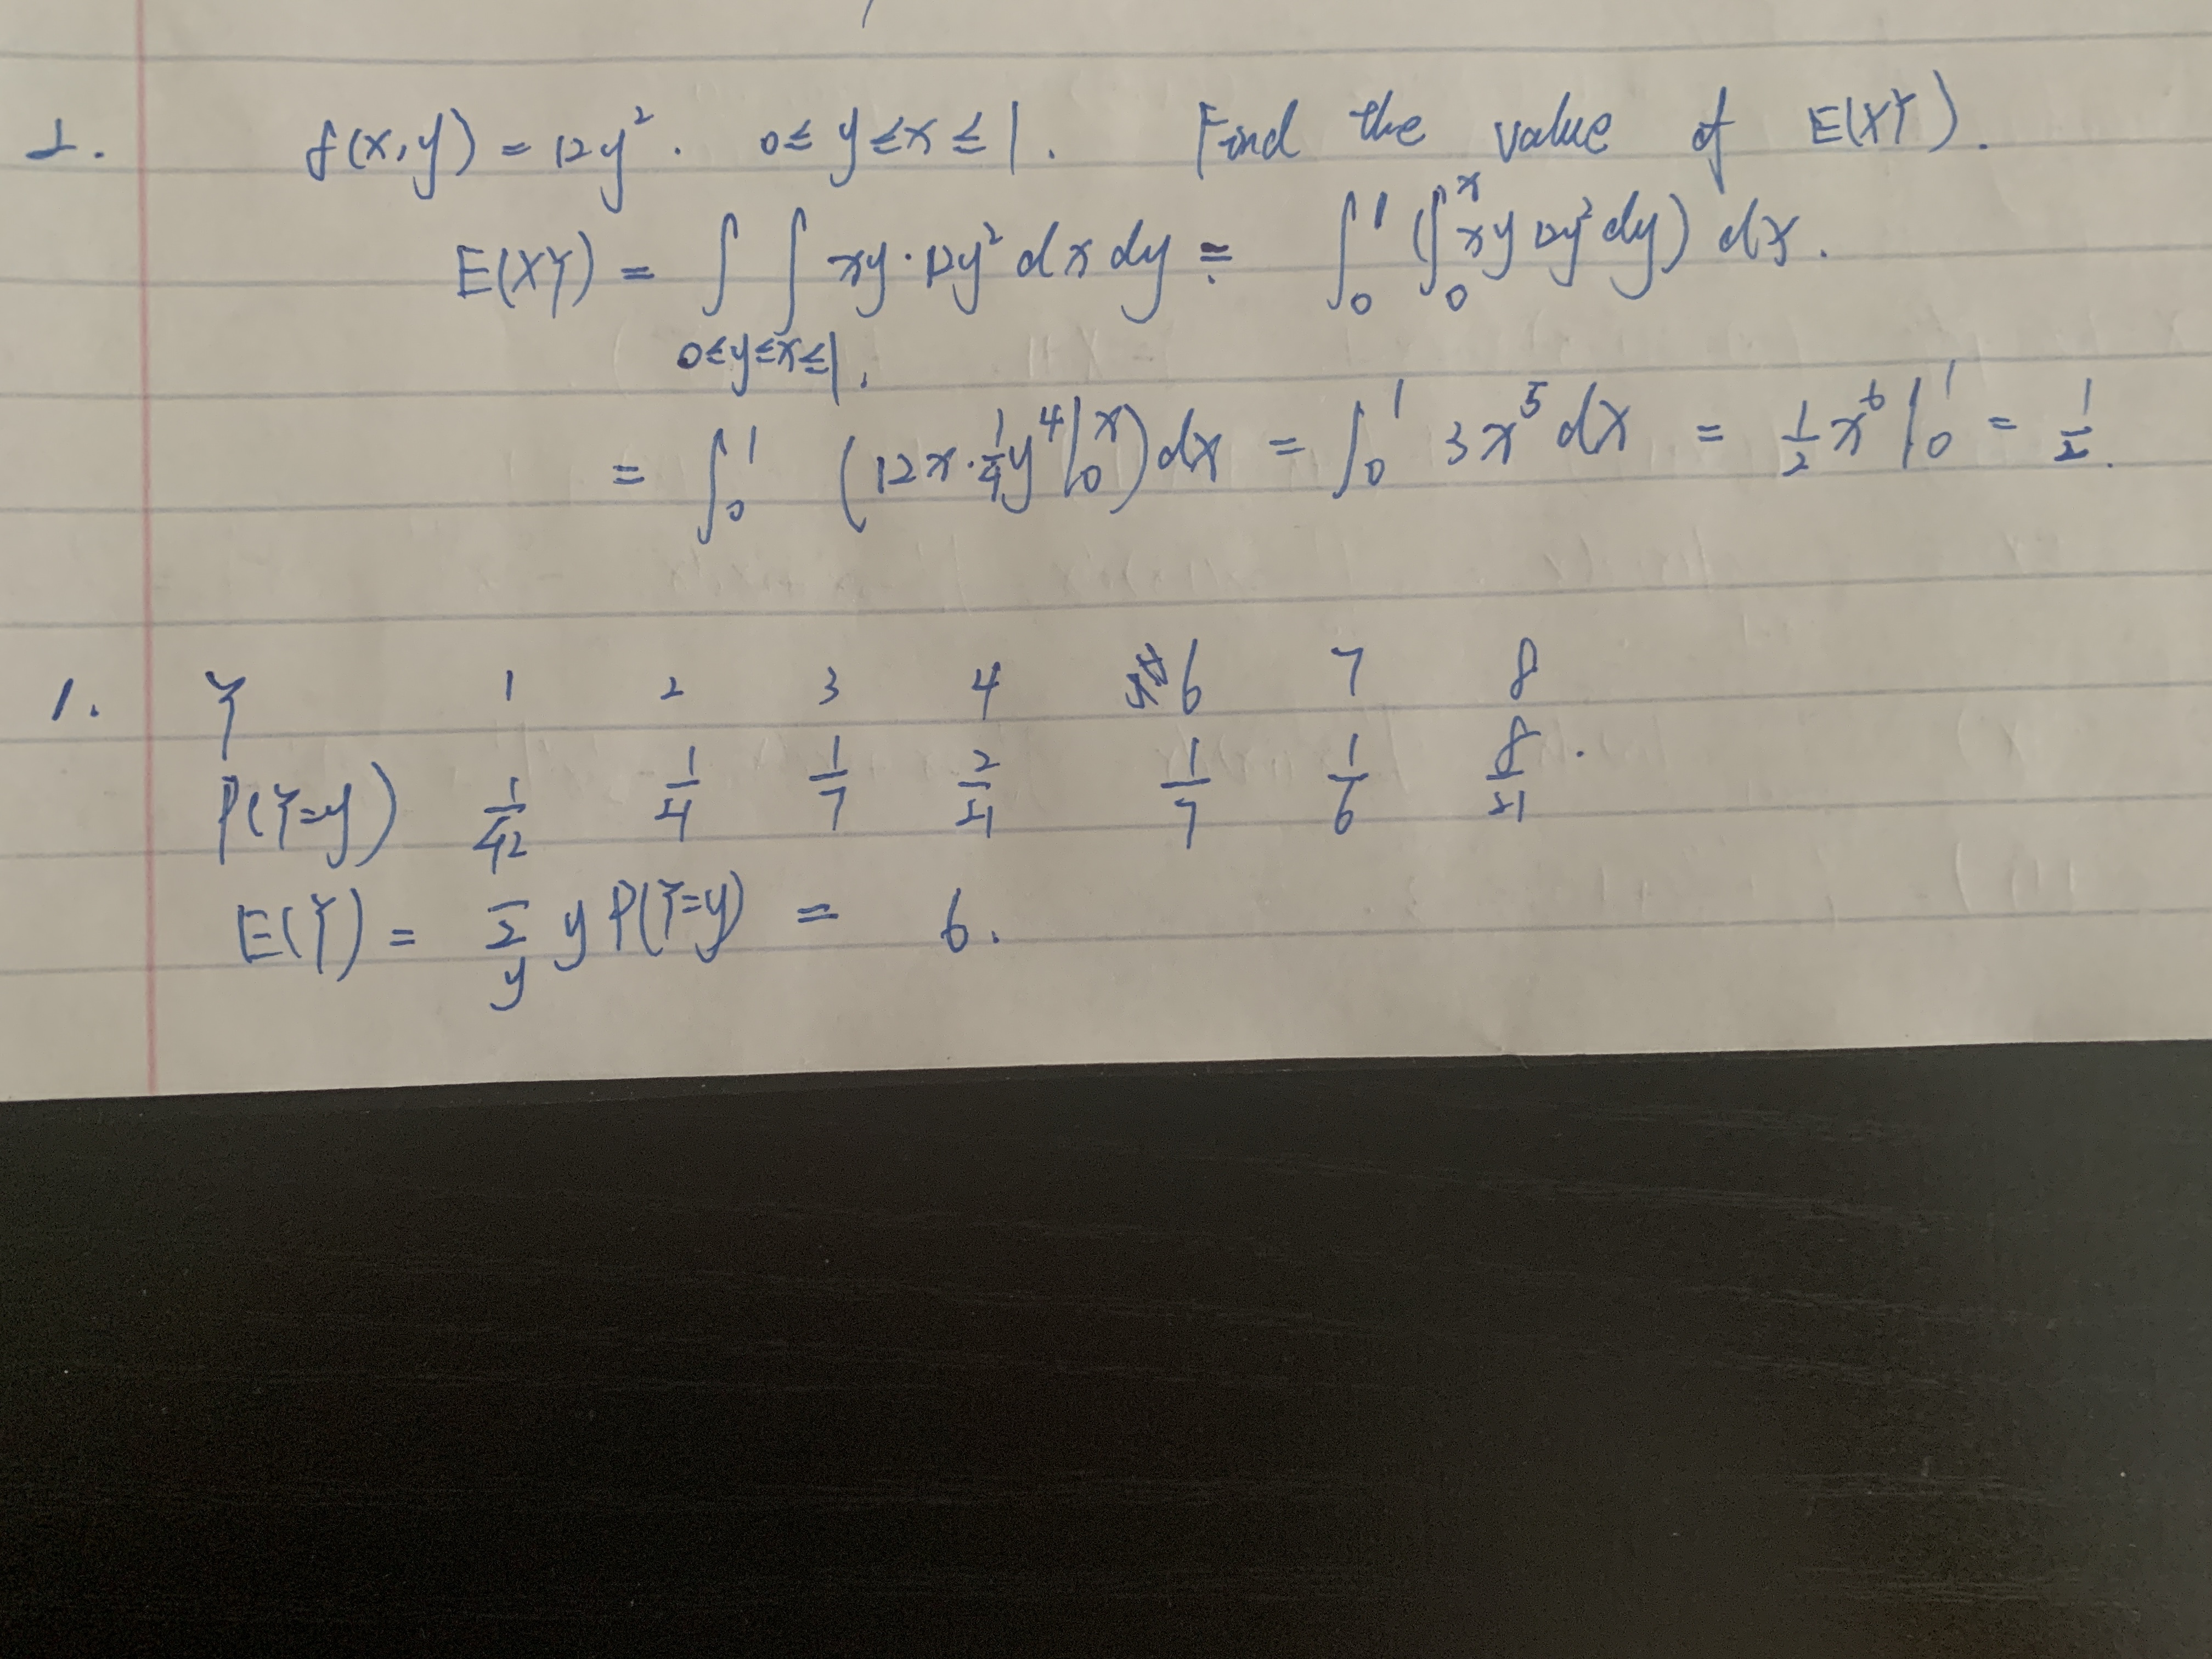 2. f(x,y) = 12y². 0≤ y≤x≤1. Find the value of E(XY).
E(XY) = ∫∫ xy·12y² dx dy = ∫₀¹ (∫₀ˣ xy 12y² dy) dx.
0≤y≤x≤1.
= ∫₀¹ (12x·¼y⁴|₀ˣ) dx = ∫₀¹ 3x⁵ dx = ½x⁶|₀¹ = ½.
1. Y 1 2 3 4 6 7 8
P(Y=y) 1/42 1/4 1/7 2/21 1/7 1/6 8/21.
E(Y) = Σ_y y P(Y=y) = 6.